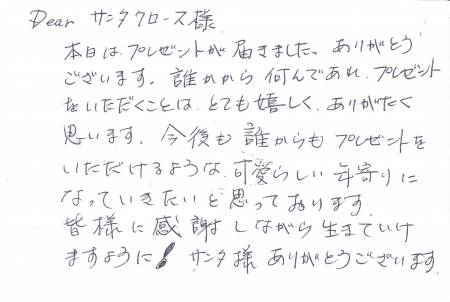 Dear サンタクロース様
本日は、プレゼントが届きました。ありがとう
ございます。誰かから何んであれ、プレゼント
をいただくことは、とても嬉しく、ありがたく
思います。今後も誰からもプレゼントを
いただけるような、可愛らしい年寄りに
なっていきたいと思っております
皆様に感謝しながら生きていけ
ますように! サンタ様 ありがとうございます